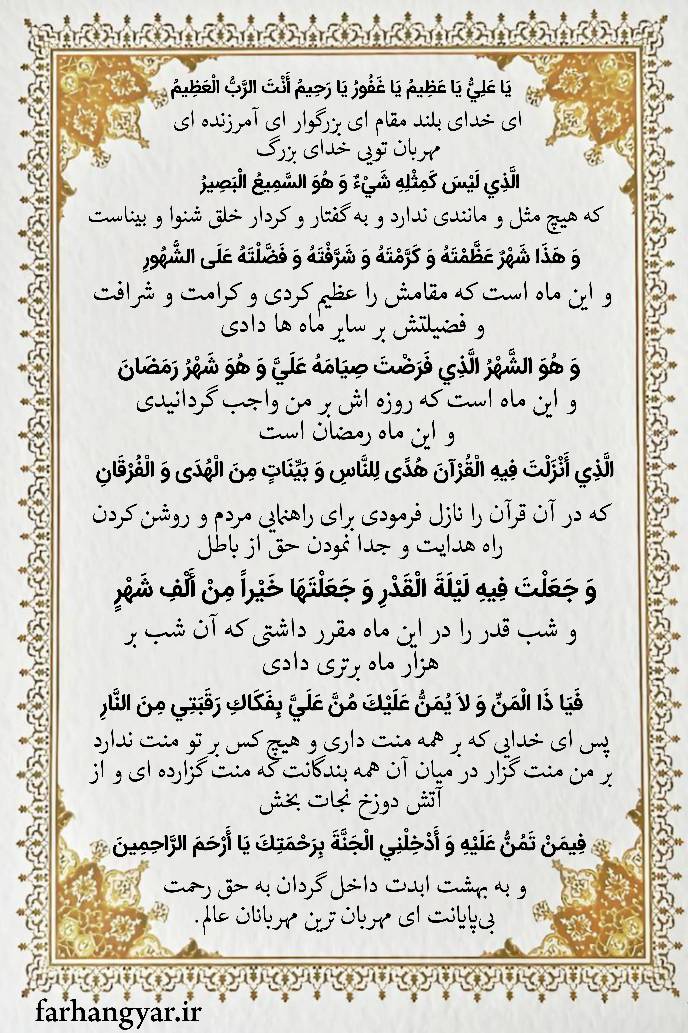 يَا عَلِيُّ يَا عَظِيمُ يَا غَفُورُ يَا رَحِيمُ أَنْتَ الرَّبُّ الْعَظِيمُ
ای خدای بلند مقام ای بزرگوار ای آمرزنده ای
مهربان تویی خدای بزرگ
الَّذِي لَيْسَ كَمِثْلِهِ شَيْءٌ وَ هُوَ السَّمِيعُ الْبَصِيرُ
که هیچ مثل و مانندی ندارد و به گفتار و کردار خلق شنوا و بیناست
وَ هَذَا شَهْرٌ عَظَّمْتَهُ وَ كَرَّمْتَهُ وَ شَرَّفْتَهُ وَ فَضَّلْتَهُ عَلَى الشُّهُورِ
و این ماه است که مقامش را عظیم کردی و کرامت و شرافت
و فضیلتش بر سایر ماه ها دادی
وَ هُوَ الشَّهْرُ الَّذِي فَرَضْتَ صِيَامَهُ عَلَيَّ وَ هُوَ شَهْرُ رَمَضَانَ
و این ماه است که روزه اش بر من واجب گردانیدی
و این ماه رمضان است
الَّذِي أَنْزَلْتَ فِيهِ الْقُرْآنَ هُدًى لِلنَّاسِ وَ بَيِّنَاتٍ مِنَ الْهُدَى وَ الْفُرْقَانِ
که در آن قرآن را نازل فرمودی برای راهنمایی مردم و روشن کردن
راه هدایت و جدا نمودن حق از باطل
وَ جَعَلْتَ فِيهِ لَيْلَةَ الْقَدْرِ وَ جَعَلْتَهَا خَيْراً مِنْ أَلْفِ شَهْرٍ
و شب قدر را در این ماه مقرر داشتی که آن شب بر
هزار ماه برتری دادی
فَيَا ذَا الْمَنِّ وَ لاَ يُمَنُّ عَلَيْكَ مُنَّ عَلَيَّ بِفَكَاكِ رَقَبَتِي مِنَ النَّارِ
پس ای خدایی که بر همه منت داری و هیچ کس بر تو منت ندارد
بر من منت گزار در میان آن همه بندگانت که منت گزارده ای و از
آتش دوزخ نجات بخش
فِيمَنْ تَمُنُّ عَلَيْهِ وَ أَدْخِلْنِي الْجَنَّةَ بِرَحْمَتِكَ يَا أَرْحَمَ الرَّاحِمِينَ
و به بهشت ابدت داخل گردان به حق رحمت
بی‌پایانت ای مهربان ترین مهربانان عالم.
farhangyar.ir